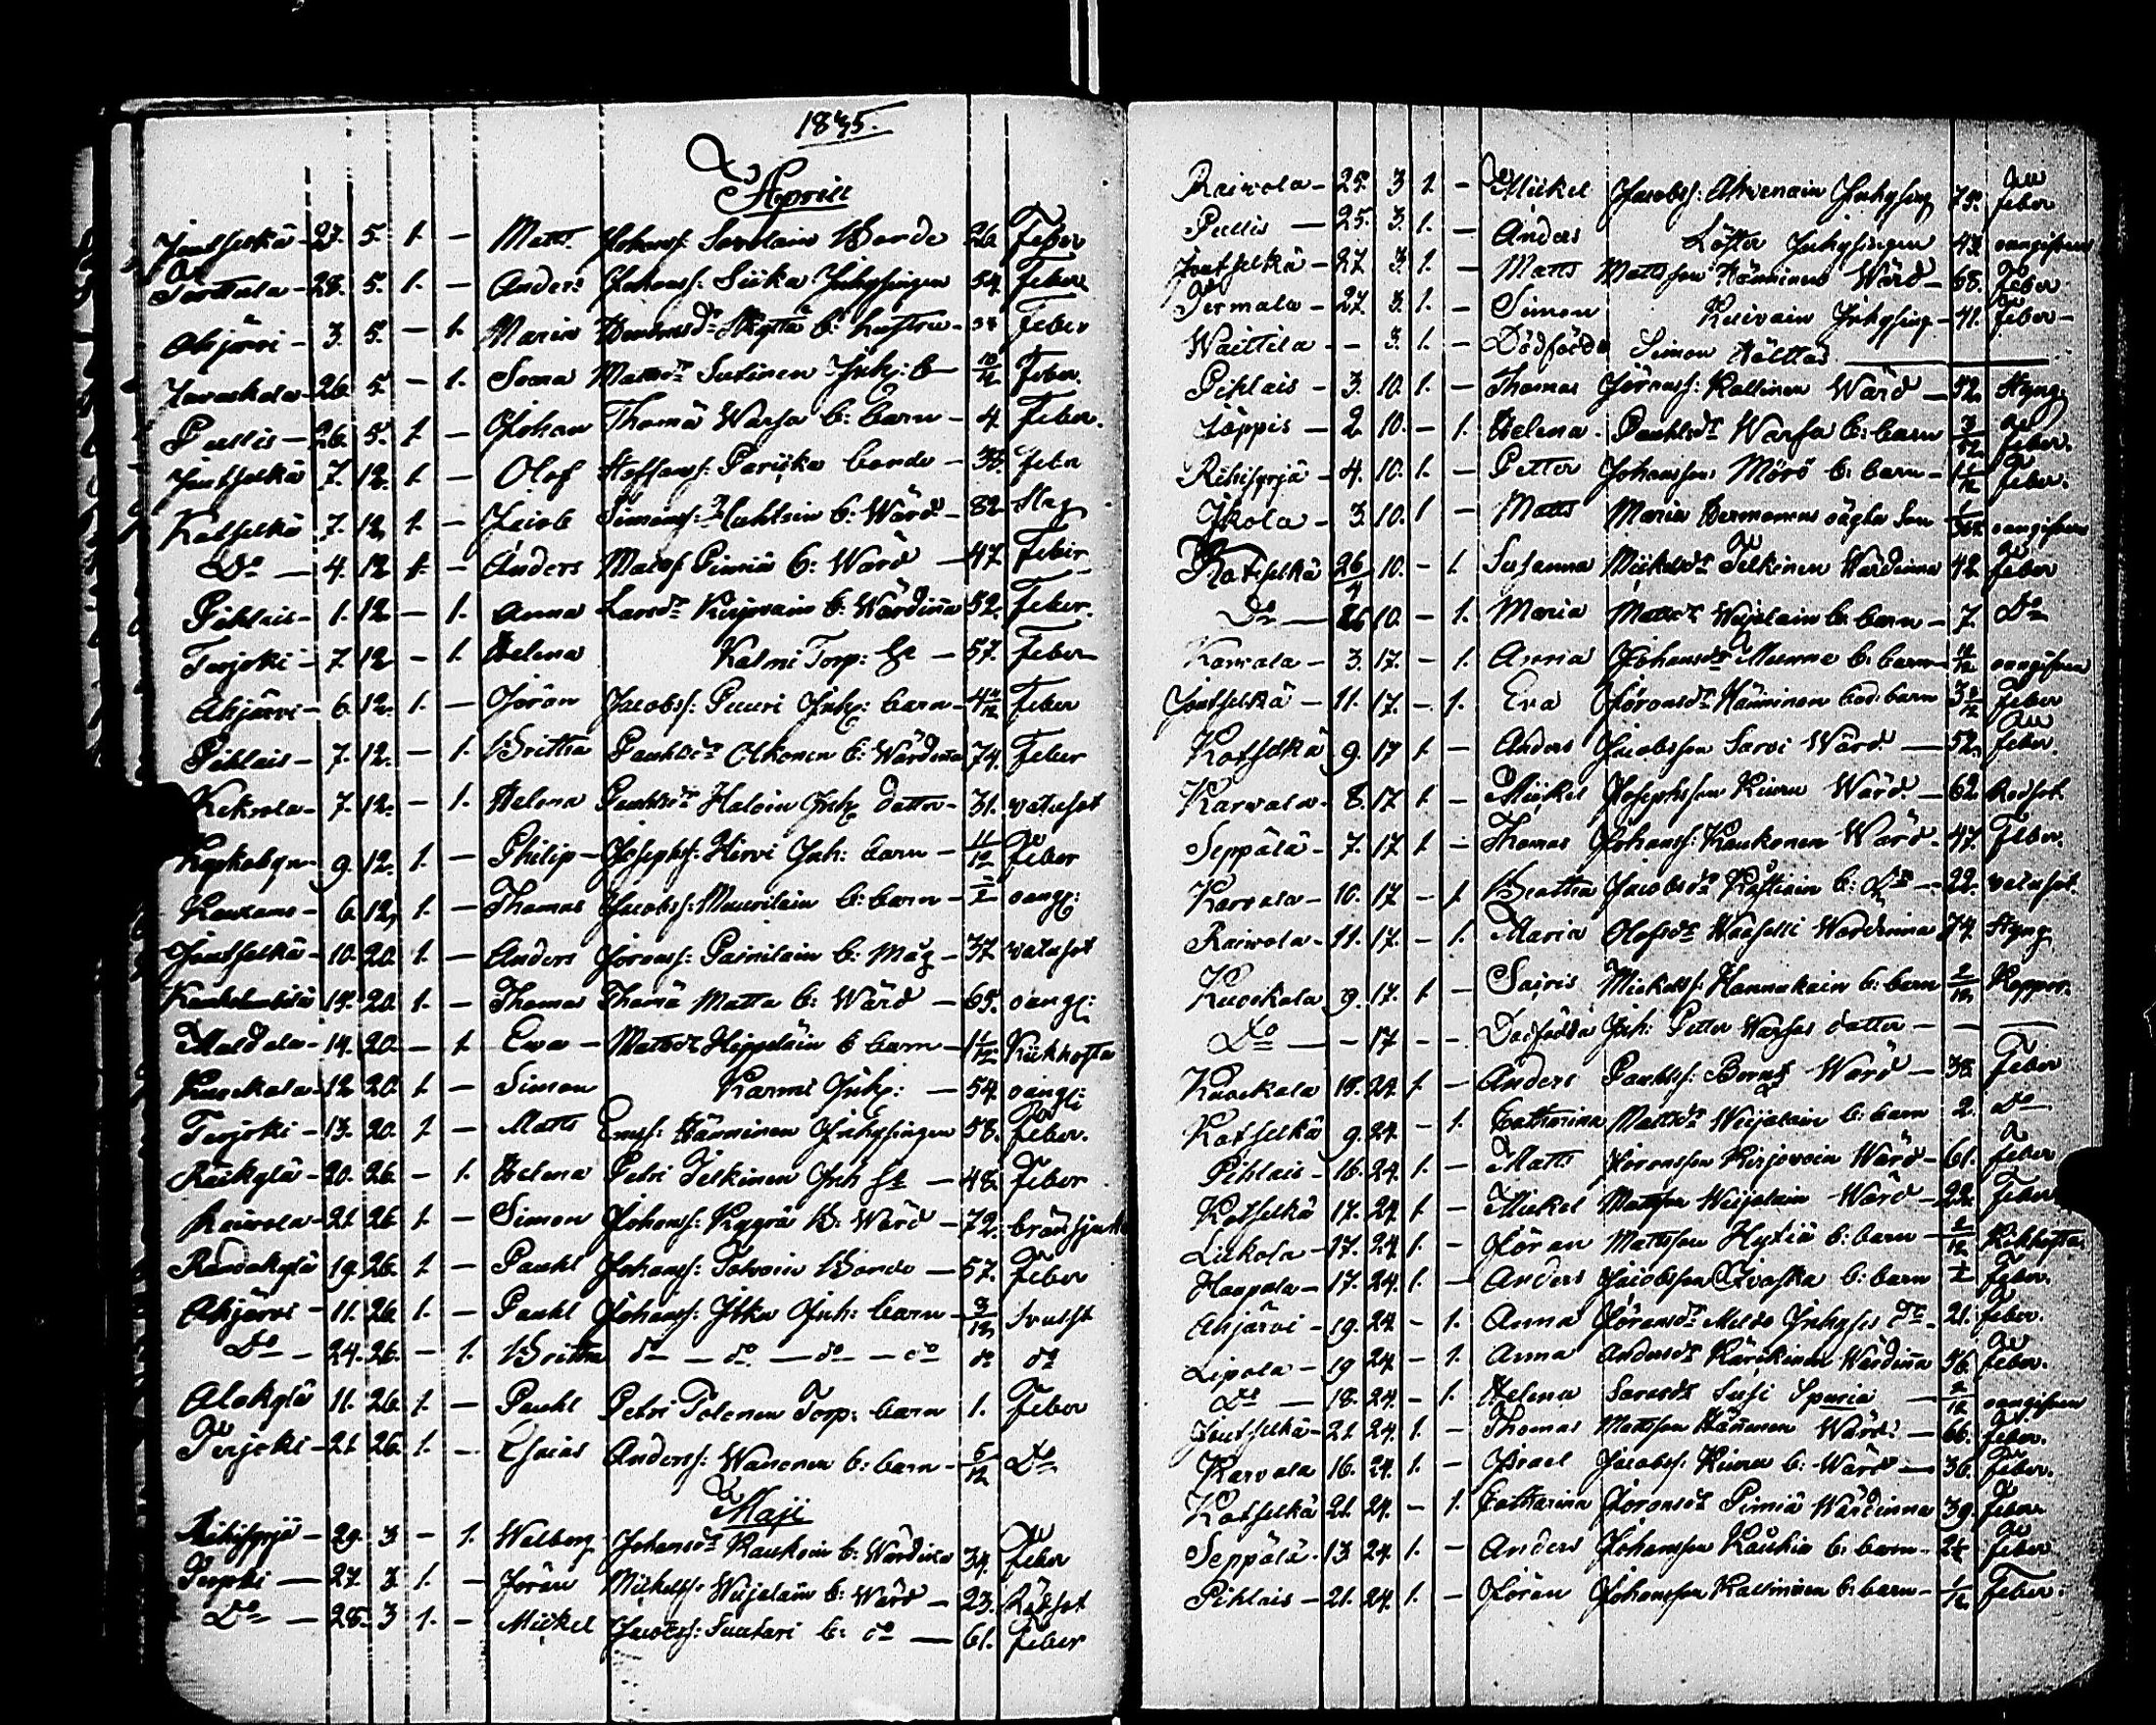 1835.
Aprill
Joutselkä - 27. 5. 1. - Matts Johanss: Savolain Bonde 26 Feber
Terttula - 28. 5. 1. - Anders Johanss: Siika Inhysingen 54. Feber
Ahjärvi - 3. 5. - 1. Maria b: hustru - 38 Feber
26. 5. - 1. Matts dr Sutinen Inh: b 10/12 Feber.
Pullis - 26. 5. 1. - Johan Thomä Warsa b: barn - 4. Feber.
Joutselkä 7. 12. 1. - Olof Staffanss: Pariska bonde - 38. Feber
Kotselkä 7. 12. 1. - Jacob Simonss: b: Wärd - 82. Slag
Do - 4. 12 1. - Anders Matss: Pimiä b: Wärd - 47. Feber
Pihlais - 1. 12 - 1. Anna Larsdr Kirjavain b: Wärdinna 52. Feber.
Terjoki - 7. 12 - 1. Helena Kalmi Torp: - 57. Feber
Ahjärvi - 6. 12. 1. - Jöran Jacobss: Puuri Inh: barn - Feber
Pihlais - 7. 12. - 1. Brittha Pauhlsdr Olkonen b: Wärdinna 74. Feber
Kekrola - 7. 12. - 1. Helena Pauhlsdr Haloin Inh: dotter - 31. vatusot
9. 12. 1. - Philip - Josephss: Hirvi Inh: barn - 11/12 Feber
6. 12, 1. - Thomas Jacobss: Muurilain b: barn - oangf:
Joutselkä - 10. 20. 1. - Anders Jöranss: b: Måg - 37. vatusot
15. 20. 1. - Thomas Thomä Matta b: Wärd - 65. oangf:
14. 20. - 1. Ewa - Mattsdr Hippeläin b barn - 1 1/12 Kikhosta
Kuockala - 12 20. 1. - Simon Karmi Inh: - 54. oangf:
Terjoki - 13. 20. 1. - Matts Hänninen Inhysingen 58. Feber.
Räikylä - 20. 26 - 1. Helena Petri Telkinen Inh - 48. Feber
Raivola - 21. 26 1. - Simon Johanss: Kyyrä b: Wärd - 72.
19. 26. 1. - Pauhl Johanss: Tolvain Bonde - 57. Feber
Ahjärvi - 11. 26 1. - Pauhl Johanss: Itka Inh: barn - 3/12
Do - 24. 26. - 1. Brittha do - do - do - do do do
Alakylä 11. 26. 1. - Pauhl Petri Polonen Torp: barn 1. Feber
Terjoki - 21. 26. 1. - Esaias Anderss: Wanonen b: barn - 5/12 Do
Maji
29. 3 - 1. Walborg Johansdr Kaukoin b: Wärdinna 34. Feber
Terjoki - 27. 3. 1. - Jöran Mickelss: Weijalain b: Wärd - 23. Rötsot
Do - 28. 3 1. - Mickel Jacobss: Suutari b: do - 61. Feber
Raivola - 25. 3 1. - Mickel Jacobss: Ahvenain Inhysing 75. feber
Pullis - 25. 3. 1. - Anders Löster Inhysingen 43. oangifven
Joutselkä - 27 3. 1. - Matts Mattsson Hänninen Wärd - 68. Feber
Termala - 27. 3. 1. - Simon Kuivain Inhysing - 41. feber -
Waittila - - 3. 1. - Dödfödde Simon Hälttas
Pihlais - 3. 10. 1. - Thomas Jöranss: Kallinen Wärd - 52. Styng
Jäppis - 2 10. - 1. Helena - Pauhlsdr Warsa b: barn feber.
4. 10. 1. - Petter Johansson Mörö b: barn - feber.
Ikola - 3. 10. 1 - Matts Maria Hermonens oägta son oangifven
Kotselkä 26/4 10. - 1. Susanna Mickelsdr Telkinen Wärdinna 42 feber
Do - 26 10. - 1. Maria Mattsdr Weijalain b: barn - 7. Do
Karvala - 3. 17. - 1. Anna Johansdr Munne b: barn oangifven
Joutselkä - 11. 17. - 1. Eva Jöransdr Hänninen bond barn feber
Kotselkä 9. 17 1. - Anders Jacobsson Sarvi Wärd - 52. feber.
Karvala - 8. 17 1. - Mickel Josephsson Kiuru Wärd. - 62. Rödsot.
Seppälä - 7. 17 1 - Thomas Johanss: Kaukonen Wärd - 47. Feber.
Karvala - 10. 17 - 1. Brittha Jacobsdr b: dr - 22. vatusot.
Raivola - 11. 17. - 1. Maria Olofsdr Wärdinna 74. Styng
Kuockala 9. 17. 1. - Mickelss: Hannukain b: barn Koppor.
Do - - 17 - - Dödfödda Inh: Petter Warsas dotter - - -
Kuockala 18. 24 1. - Anders Pauhlss: Wärd - 38. Feber
Kotselkä 9. 24. - 1. Catharina Mattsdr Weijalain b: barn 2. Do
Pihlais - 16. 24. 1. - Matts Jöransson Kirjavain Wärd - 61. feber
Kotselkä 17. 24. 1. - Mickel Mattsson Weijalain Wärd - 22. Feber
Liikola - 17. 24. 1. - Jöran Mattsson Hytiä b: barn Kikhosta
Haapala - 17. 24. 1. - Anders Jacobsson Ivaska b: barn Feber.
Ahjärvi - 19. 24. - 1. Anna Jöransdr Inhyses dr. 21. feber.
Lipola - 19 24. - 1. Anna Andersdr Kärkinen Wärdinna 56. feber.
Do - 18. 24. - 1. Helena Susi Spuria oangifven
Joutselkä - 21. 24. 1. - Thomas Mattsson Hänninen Wärd: - 66. feber.
Karvala 16. 24. 1. - Israel Jacobss: Kiuru b: Wärd - 36. feber.
Kotselkä 21. 24. - 1. Catharina Jöransdr Pimiä Wärdinna 39. feber
Seppälä - 13 24. 1. - Anders Johansson b: barn - feber
Pihlais - 21. 24. 1. - Jöran Johansson Kallininen b: barn - 1/12 Feber.